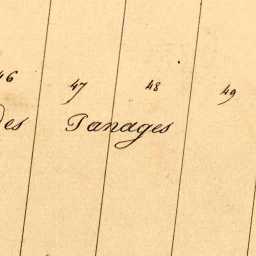 46 47 48 49
des Tanages